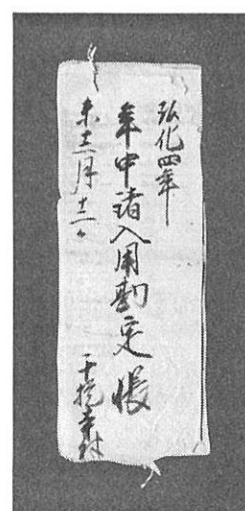 弘化四年
年中諸入用勘定帳
未十二月十二日